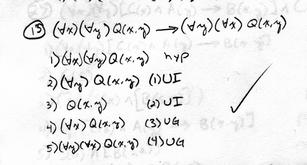 (15) (∀x)(∀y) Q(x,y) → (∀y)(∀x) Q(x,y)
1) (∀x)(∀y) Q(x,y) hyp
2) (∀y) Q(x,y) (1) UI
3) Q(x,y) (2) UI
4) (∀x) Q(x,y) (3) UG
5) (∀y)(∀x) Q(x,y) (4) UG